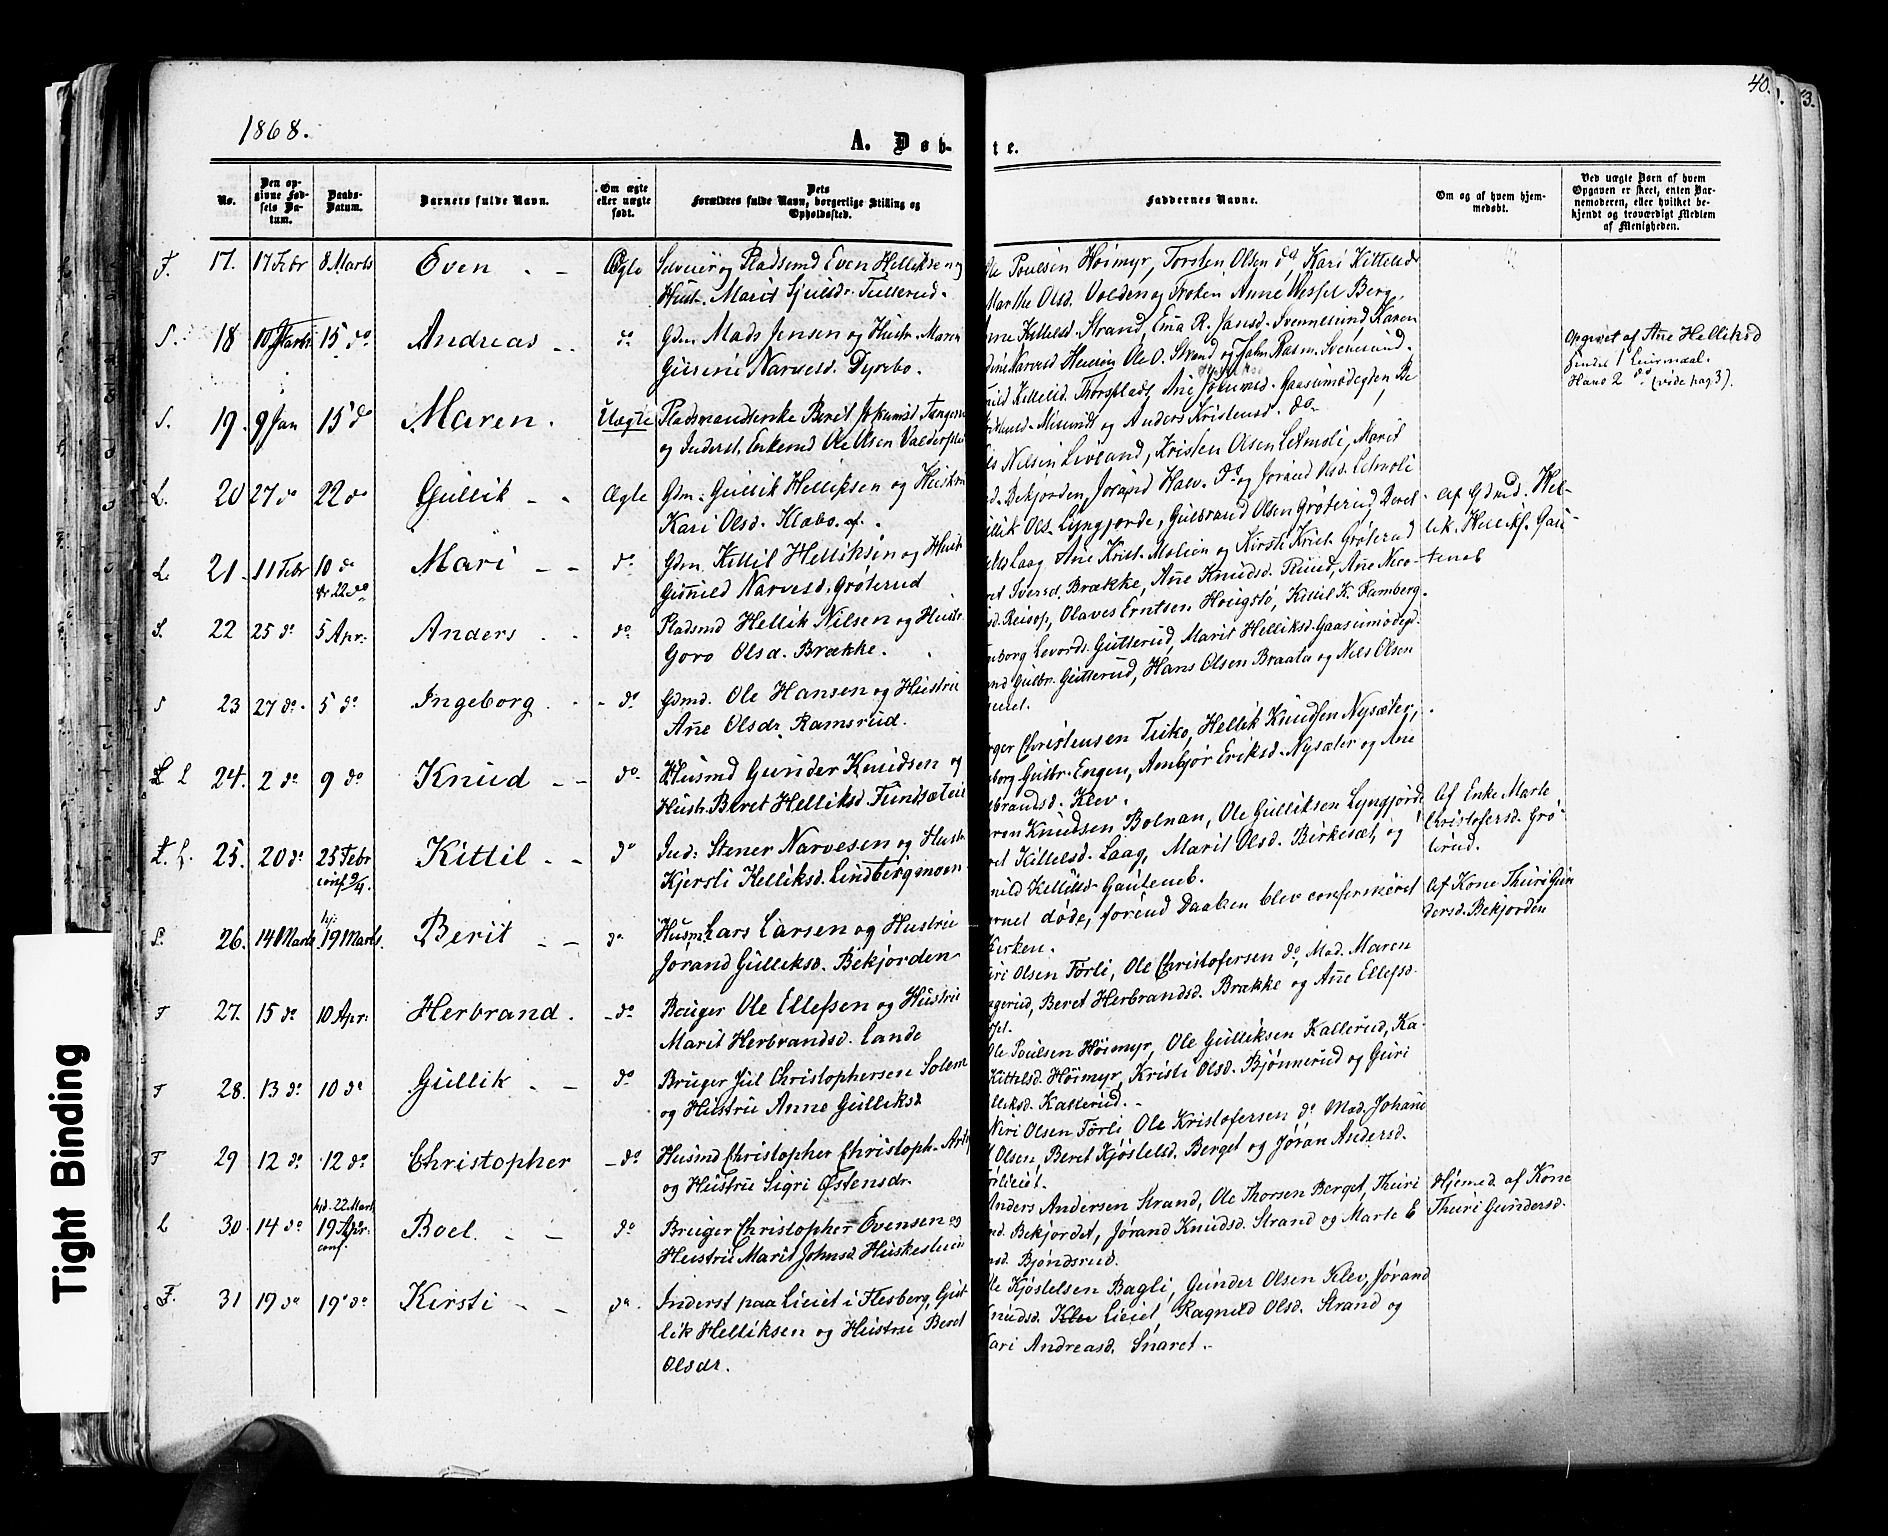 40.
3.
1868.
A. Døb-
te.
No.
Den op-
givne Fød-
sels Da-
tum.
Daabs-
Datum.
Barnets fulde Navn.
Om ægte
eller uægte
født.
Dets
Forældres fulde Navn, borgerlige Stilling og
Opholdssted.
Faddernes Navne.
Om og af hvem hjem-
medøbt.
Ved uægte Børn af hvem
Opgaven er skeet, enten Bar-
nemoderen, eller hvilket be-
kjendt og troværdigt Medlem
af Menigheden.
F. 17. 17 Febr 8 Marts Even Ægte Selveier og Pladsmd Even Helliksen og
Hustr. Marit Sjulsdr. Tullerud.
Ole Poulsen Høimyr, Torsten Olsen do, Kari Kittelsd
Marthe Olsd. Volden og Frøken Anne Wessel Berg.
S. 18 10 Marts 15 do Andreas do Gdm. Mads Jensen og Hustr. Maren
Gurine Narvesd. Dyrebo.
Kittelsd. Strand, Ema R. Jansd. Svennesund Karen
Narvesd Ole O. Strand og John Rasm. Svenesund.
Opgivet af Ane Helliksd
Hans 2 do (vide pag 3).
S. 19. 9 Jan 15 do Maren. Uægte Pladsmandsenke Berit Johansd Tangen
og Inderst, Enkemd Ole Olsen
Kittelsd. Thorsplads, Ane Gaasumødegden Be
Misund og Anders Kristensd. do
L. 20 27 do 22 do Gullik Ægte Gdm. Gullik Helliksen og Hustru
Kari Olsd. Klabo. af.
Nilsen Livland, Kristen Olsen Letmoli, Marit
Bekjorden, Jorand Halv. do og Jorand Olsd. Letmoli
Af Gdmd. Hel-
lik Hellikf. Gau-
teneb
L. 21. 11 Febr 10 do
dr 22 do Mari do. Gdm. Kittil Helliksen og Hustr
Gunild Narvesd. Grøterud
Ols. Lyngjorde, Gulbrand Olsen Grøterud, Beret
Laag Ane Krist. Moliin og Kirsti Krist. Grøterud
S. 22 25 do 5 Apr: Anders do. Pladsmd Hellik Nilsen og Hustr.
Goro Olsd. Brække.
Iversd. Brække, Ane Knudsd. Ruud, Ane Nico-
Reisop, Olaves Erntsen Hougstø, Kittil K. Ramberg.
S 23 27 do. 5 do Ingeborg do Gdmd. Ole Hansen og Hustru
Ane Olsdr. Ramsrud.
Levords. Gutterud, Marit Helliksd. Gaasumødegd.
Gulbr. Gutterud, Hans Olsen Braata og Nils Olsen
L L 24. 2 do 9 do Knud do. Husmd Gunder Knudsen og
Hustr. Beret Helliksd. Fundsæteie
Christensen Teiko, Hellik Knudsen Nysæter,
Gulbr. Engen, Ambjør Eriksd. Nysæter og Ane
Klev.
L. L. 25. 20 do 25 Febr
conf. 9/4. Kittil do Ind: Stener Narvesen og Hustr.
Kjersti Helliksd. Lindbergmoen
Knudsen Bolnan, Ole Gulliksen Lyngjorde
Kittelsd. Laag, Marit Olsd. Birkesæt, og
Kittilsd. Gauteneb.
Af Enke Marte
Christofersd. Grø-
terud.
S. 26. 14 Marts hj:
19 Marts. Berit do. Husm. Lars Larsen og Hustrue
Jorand Gulliksd. Bekjorden
døde, forend Daaben blev confermeret
Kirken.
Af Kone Thuri Gun
dersd. Bekjorden
F 27. 15 do 10 Apr: Herbrand. do. Bruger Ole Ellefsen og Hustru
Marit Herbrandsd. Lande
Olsen Förli, Ole Christofersen do, Mad. Maren
Beret Herbrandsd. Brække og Ane Ellefsd.
F 28. 13 do 10 do Gullik do Bruger Jul Christophersen Solem
og Hustru Anne Gulliksd
Ole Poulsen Høimyr, Ole Gulliksen Kallerud, Ka-
Kittelsd. Høimyr, Kristi Olsd. Bjønnerud og Guri
Kallerud.
F 29 12 do 12 do Christopher do. Husmd Christopher Christoph.
og Hustru Sigri Østensdr.
Olsen Förli Ole Kristofersen do Mad. Johane
Olsen, Beret Kjøstelsd. Berget og Jøran Andersd.
L 30. 14 do hjd. 22 Mart
19 Apr:
conf. Boel. do Bruger Christopher Evensen og
Hustru Marit Johnsd Huskesleien
Anders Andersen Strand, Ole Thorsen Berget, Thuri
Bekjordet, Jørand Knudsd. Strand og Marte E
Bjøndsrud.
Hjemed. af Kone
Thuri Gundersd.
F. 31 19 do 19 do Kirsti do. Inderst paa Lieiet i Flesberg, Gul-
lik Helliksen og Hustru Beret
Olsdr.
Kjøstelsen Bagli, Gunder Olsen Klev, Jørand
Knudsd. Lieiet, Ragnild Olsd. Strand og
Kari Andreasd. Snaret.
Tight Binding